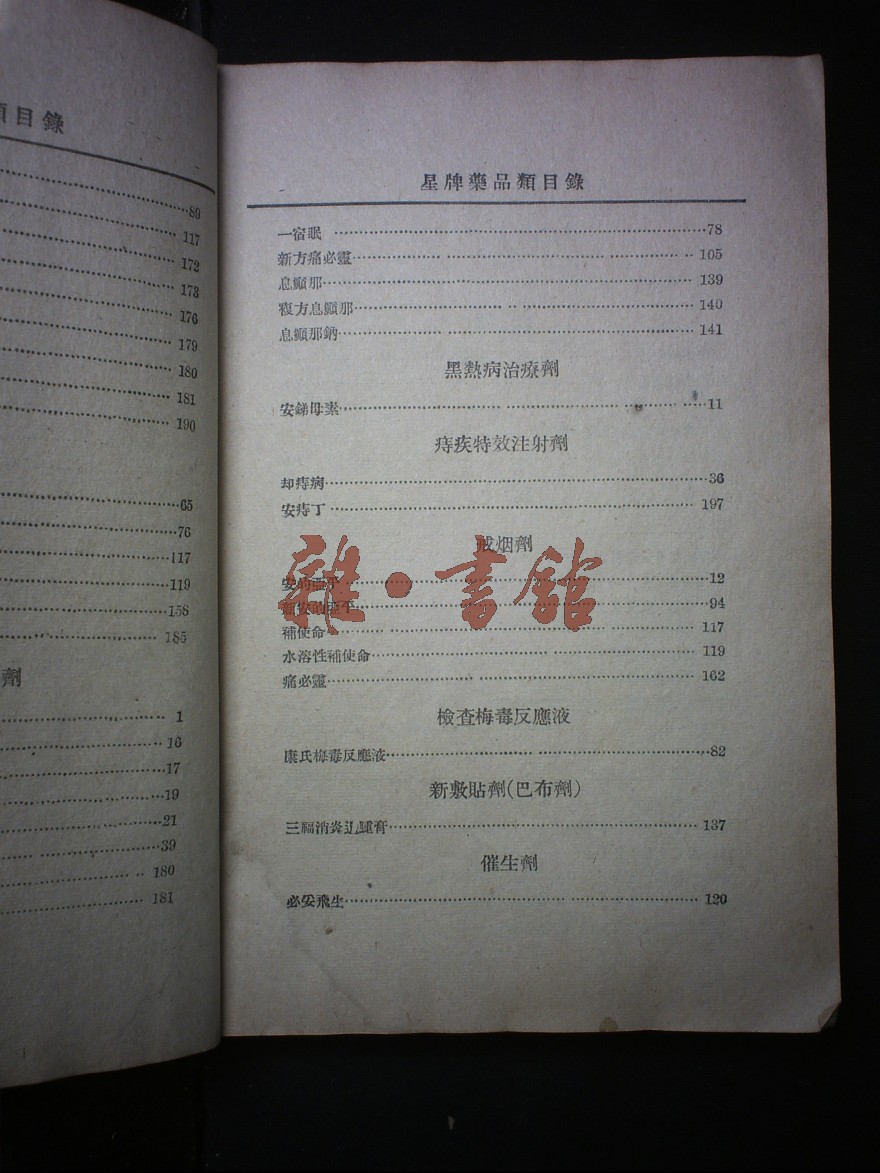 目錄
80
117
172
173
176
179
180
181
190
65
76
117
119
158
185
劑
1
16
17
19
21
39
180
181
星牌藥品類目錄
一宿眠 78
新方痛必靈 105
息癲那 139
複方息癲那 140
息癲那鈉 141
黑熱病治療劑
安銻母素 11
痔疾特效注射劑
却痔病 36
安痔丁 197
戒烟劑
安的亞平 12
新安的亞平 94
補使命 117
水溶性補使命 119
痛必靈 162
檢查梅毒反應液
康氏梅毒反應液 82
新敷貼劑(巴布劑)
三福消炎退腫膏 137
催生劑
必妥飛生 120
雜·書館